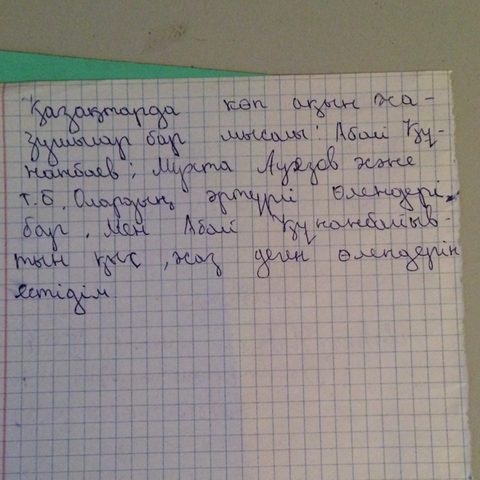 Қазақтарда көп ақын жа-
зушылар бар мысалы: Абай Құ-
нанбаев; Мухта Ауезов және
т.б. Олардың әртүрлі өлеңдері
бар. Мен Абай Құнанбайыв-
тың қыс, жаз деген өлендерін
естідім